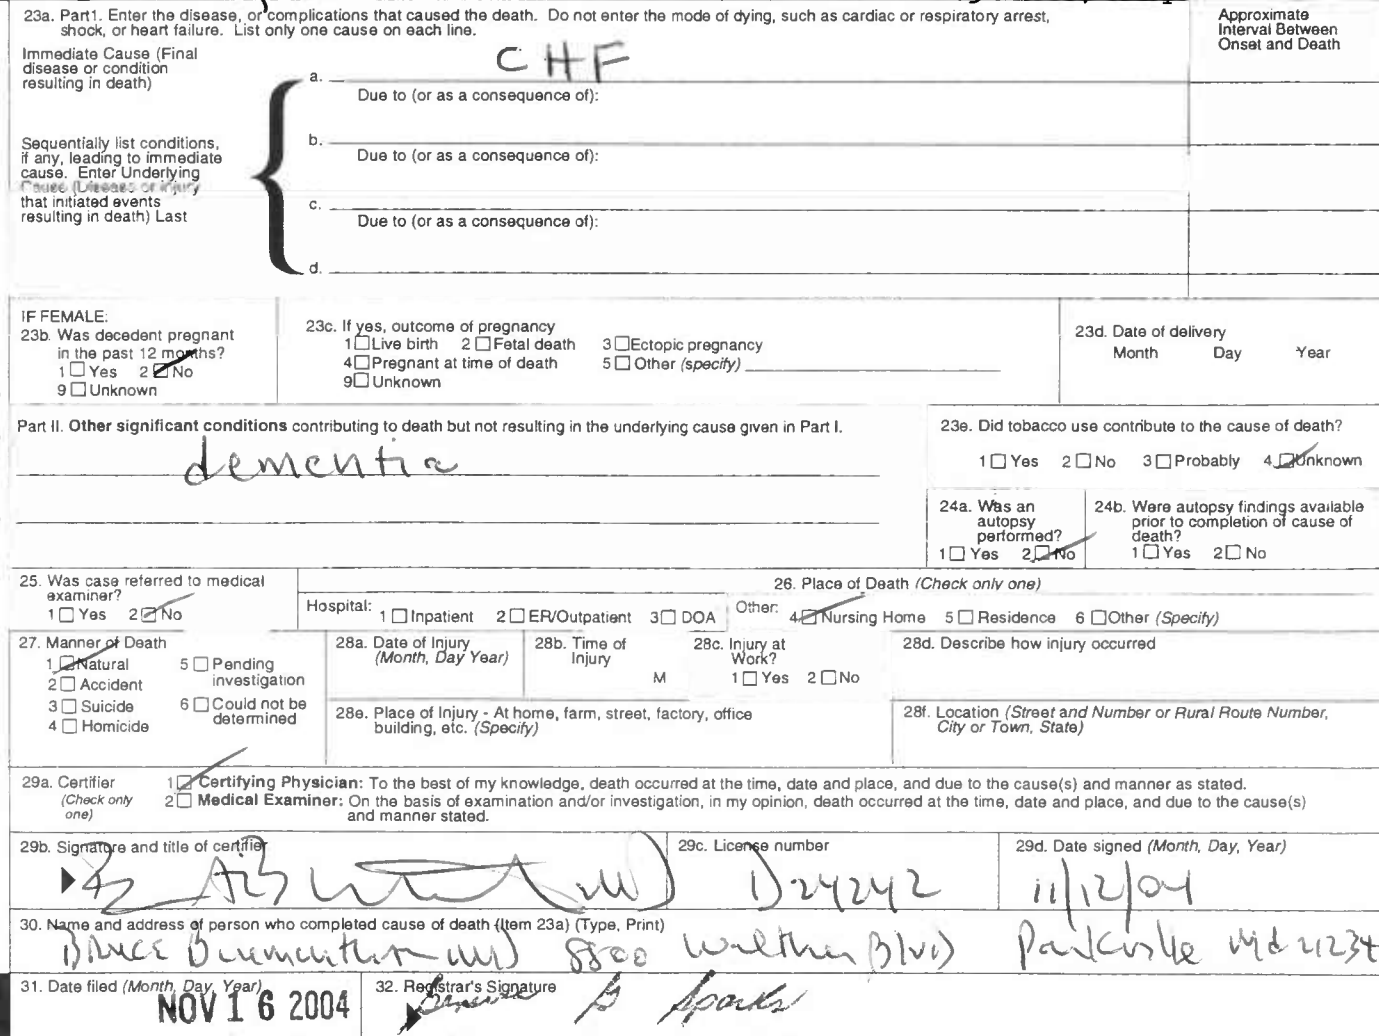 23a. Part1. Enter the disease, or complications that caused the death. Do not enter the mode of dying, such as cardiac or respiratory arrest,
shock, or heart failure. List only one cause on each line.
Approximate
Interval Between
Onset and Death
Immediate Cause (Final
disease or condition
resulting in death)
a. CHF
Due to (or as a consequence of):
Sequentially list conditions,
if any, leading to immediate
cause. Enter Underlying
Cause (Disease or injury
that initiated events
resulting in death) Last
b.
Due to (or as a consequence of):
c.
Due to (or as a consequence of):
d.
IF FEMALE:
23b. Was decedent pregnant
in the past 12 months?
1 Yes 2 No
9 Unknown
23c. If yes, outcome of pregnancy
1 Live birth 2 Fetal death 3 Ectopic pregnancy
4 Pregnant at time of death 5 Other (specify)
9 Unknown
23d. Date of delivery
Month Day Year
Part II. Other significant conditions contributing to death but not resulting in the underlying cause given in Part I.
dementia
23e. Did tobacco use contribute to the cause of death?
1 Yes 2 No 3 Probably 4 Unknown
24a. Was an
autopsy
performed?
1 Yes 2 No
24b. Were autopsy findings available
prior to completion of cause of
death?
1 Yes 2 No
25. Was case referred to medical
examiner?
1 Yes 2 No
26. Place of Death (Check only one)
Hospital: 1 Inpatient 2 ER/Outpatient 3 DOA Other: 4 Nursing Home 5 Residence 6 Other (Specify)
27. Manner of Death
1 Natural 5 Pending
investigation
2 Accident
3 Suicide 6 Could not be
determined
4 Homicide
28a. Date of Injury
(Month, Day Year)
28b. Time of
Injury
M
28c. Injury at
Work?
1 Yes 2 No
28d. Describe how injury occurred
28e. Place of Injury - At home, farm, street, factory, office
building, etc. (Specify)
28f. Location (Street and Number or Rural Route Number,
City or Town, State)
29a. Certifier
(Check only
one)
1 Certifying Physician: To the best of my knowledge, death occurred at the time, date and place, and due to the cause(s) and manner as stated.
2 Medical Examiner: On the basis of examination and/or investigation, in my opinion, death occurred at the time, date and place, and due to the cause(s)
and manner stated.
29b. Signature and title of certifier
MD
29c. License number
D24242
29d. Date signed (Month, Day, Year)
11/12/04
30. Name and address of person who completed cause of death (Item 23a) (Type, Print)
Bruce MD 8800 Walther Blvd Parkville Md 21234
31. Date filed (Month, Day, Year)
NOV 16 2004
32. Registrar's Signature
Sparks